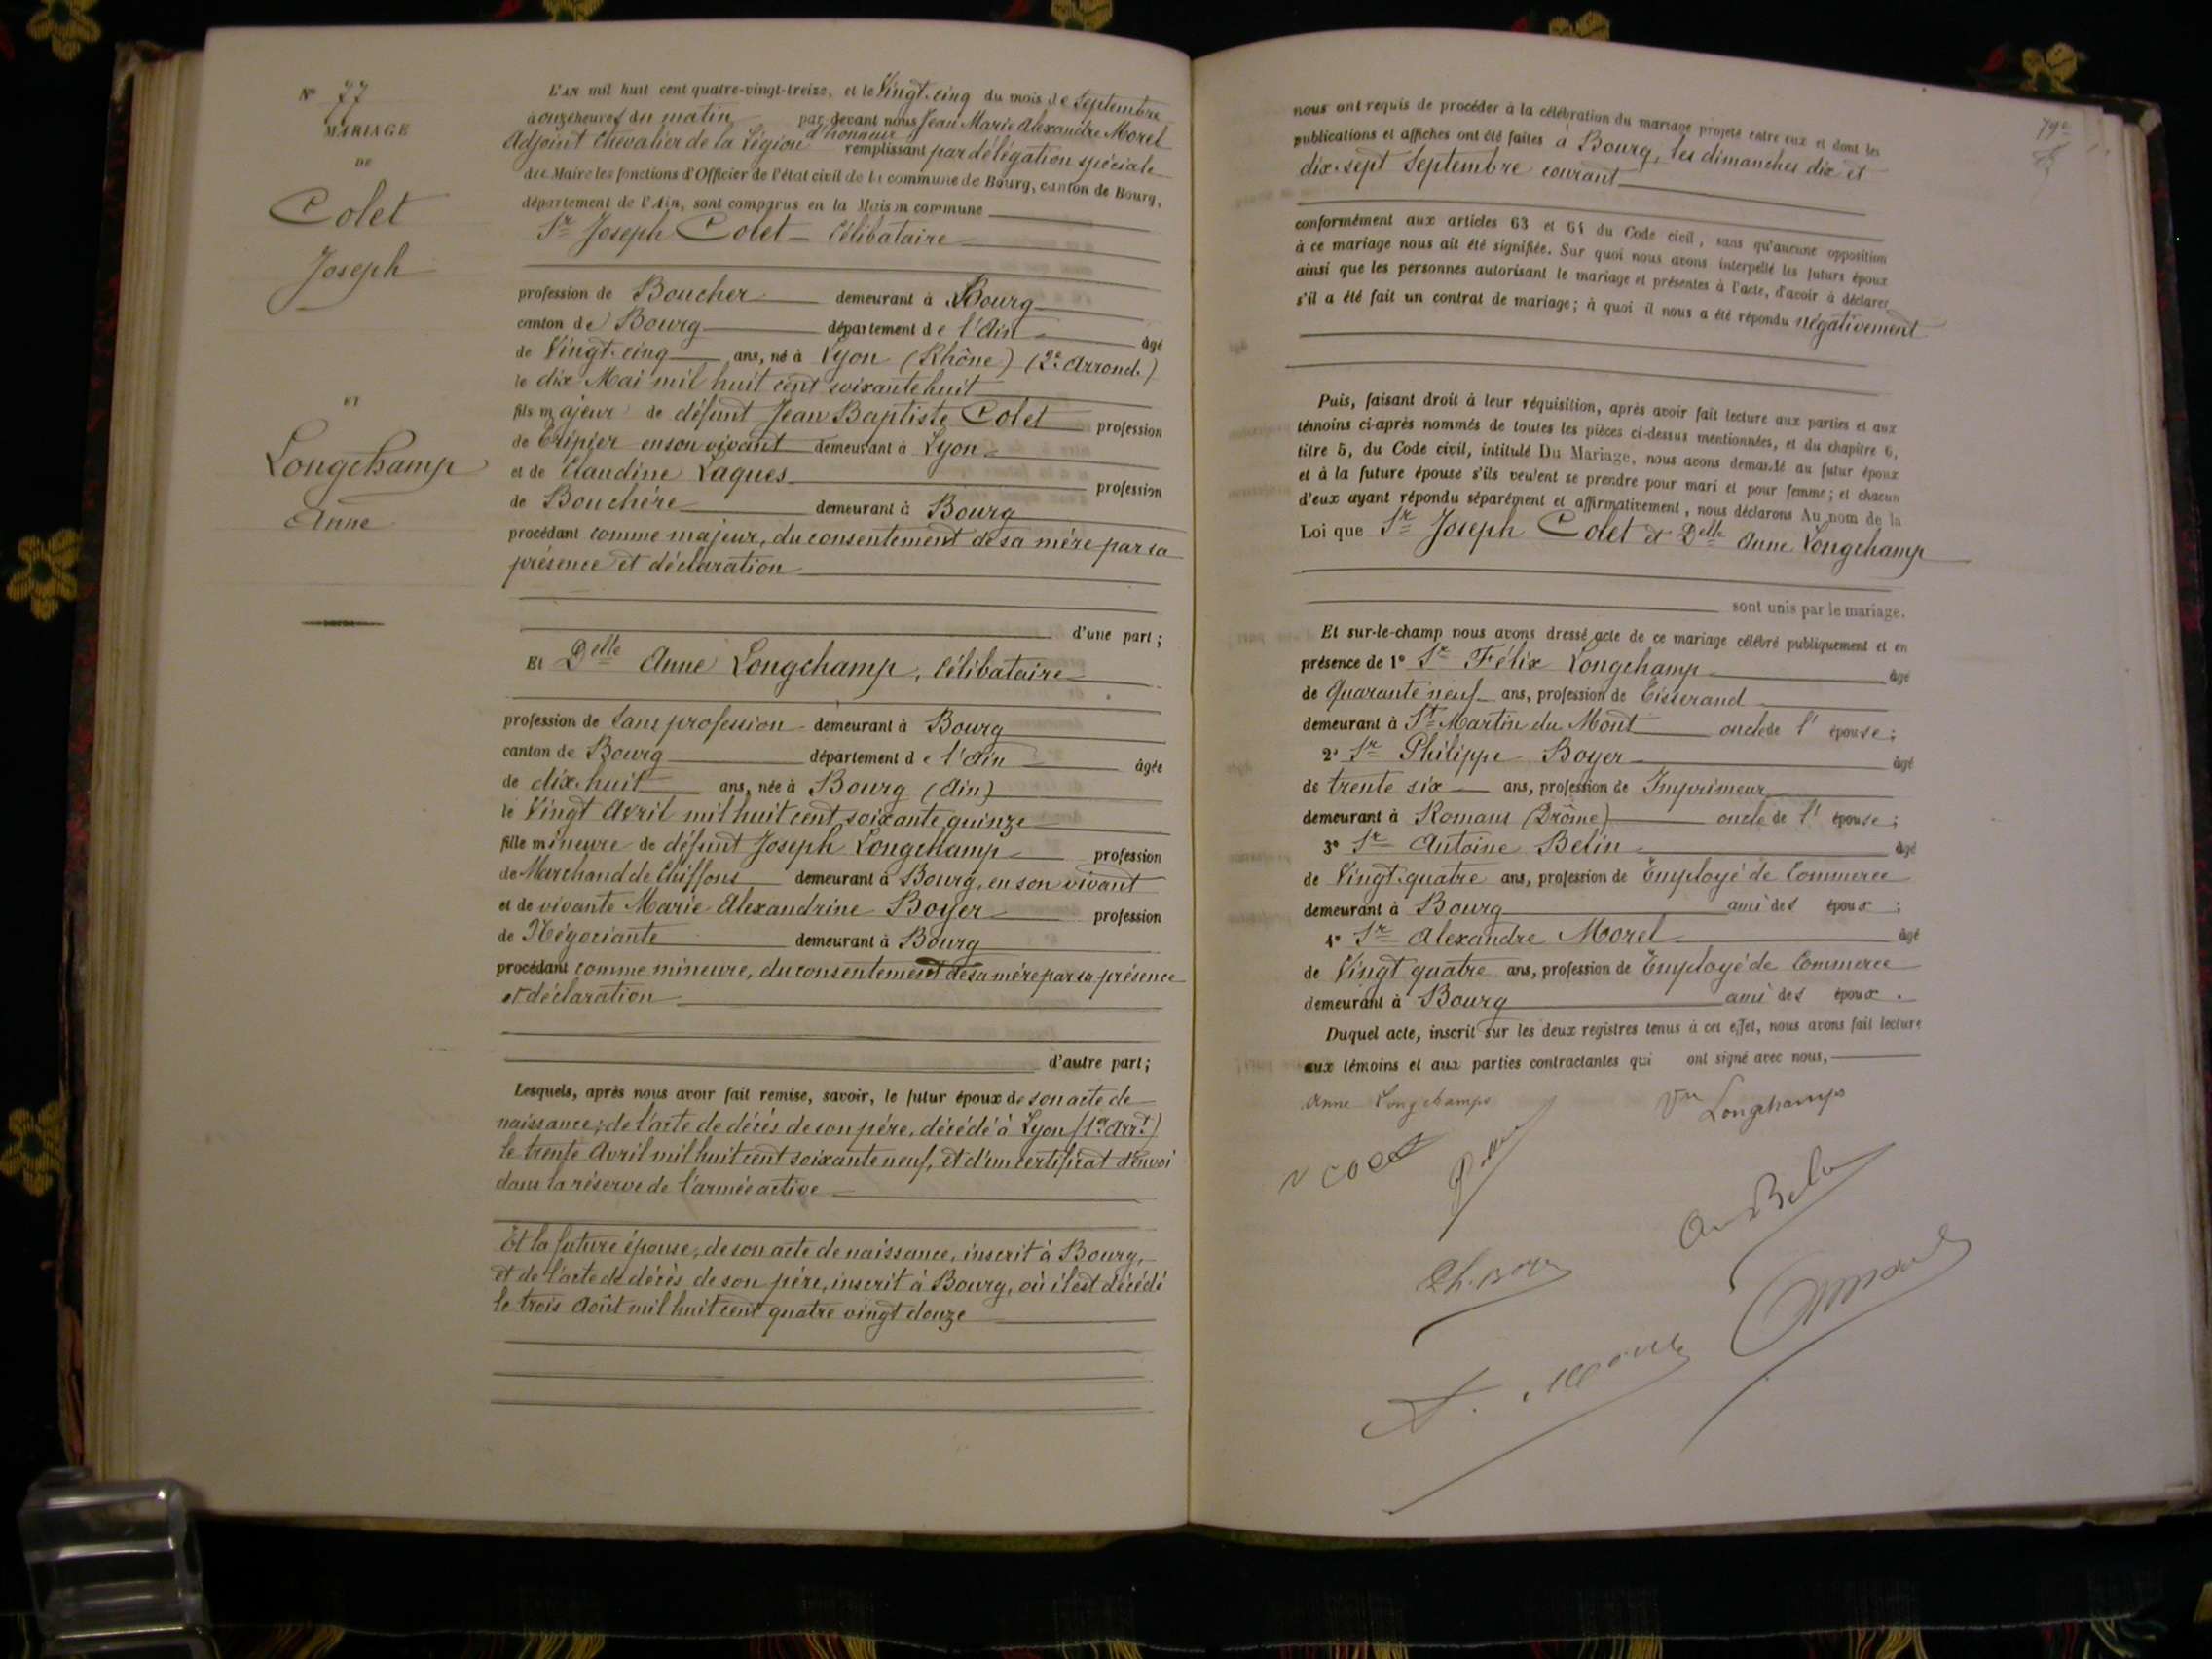 N° 77
MARIAGE
DE
Colet
Joseph
ET
Longchamp
Anne
L'AN mil huit cent quatre-vingt-treize, et le Vingt-cinq du mois de Septembre
à onze heures du matin par devant nous Jean Marie Alexandre Morel
Adjoint Chevalier de la Légion d'honneur remplissant par délégation spéciale
du Maire les fonctions d'Officier de l'état civil de la commune de Bourg, canton de Bourg,
département de l'Ain, sont comparus en la Maison commune
Sr Joseph Colet - Célibataire
profession de Boucher demeurant à Bourg
canton de Bourg département de l'Ain âgé
de Vingt-cinq ans, né à Lyon (Rhône) (2e Arrond.)
le dix Mai mil huit cent soixante huit
fils majeur de défunt Jean Baptiste Colet profession
de Tripier en son vivant demeurant à Lyon
et de Claudine Laques profession
de Bouchère demeurant à Bourg
procédant comme majeur, du consentement de sa mère par sa
présence et déclaration
d'une part;
Et Delle Anne Longchamp, Célibataire
profession de Sans profession demeurant à Bourg
canton de Bourg département de l'Ain âgée
de dix-huit ans, née à Bourg (Ain)
le Vingt Avril mil huit cent soixante quinze
fille mineure de défunt Joseph Longchamp profession
de Marchand de Chiffons demeurant à Bourg, en son vivant
et de vivante Marie Alexandrine Boyer profession
de Négociante demeurant à Bourg
procédant comme mineure, du consentement de sa mère par sa présence
et déclaration
d'autre part;
Lesquels, après nous avoir fait remise, savoir, le futur époux de son acte de
naissance; de l'acte de décès de son père, décédé à Lyon (1er Arrt)
le trente Avril mil huit cent soixante neuf, et d'un certificat d'envoi
dans la réserve de l'armée active
Et la future épouse, de son acte de naissance, inscrit à Bourg,
et de l'acte de décès de son père, inscrit à Bourg, où il est décédé
le trois Août mil huit cent quatre vingt douze
79e
nous ont requis de procéder à la célébration du mariage projeté entre eux et dont les
publications et affiches ont été faites à Bourg, les dimanches dix et
dix-sept Septembre courant
conformément aux articles 63 et 64 du Code civil, sans qu'aucune opposition
à ce mariage nous ait été signifiée. Sur quoi nous avons interpellé les futurs époux
ainsi que les personnes autorisant le mariage et présentes à l'acte, d'avoir à déclarer
s'il a été fait un contrat de mariage; à quoi il nous a été répondu négativement
Puis, faisant droit à leur réquisition, après avoir fait lecture aux parties et aux
témoins ci-après nommés de toutes les pièces ci-dessus mentionnées, et du chapitre 6,
titre 5, du Code civil, intitulé Du Mariage, nous avons demandé au futur époux
et à la future épouse s'ils veulent se prendre pour mari et pour femme; et chacun
d'eux ayant répondu séparément et affirmativement, nous déclarons Au nom de la
Loi que Sr Joseph Colet et Delle Anne Longchamp
sont unis par le mariage.
Et sur-le-champ nous avons dressé acte de ce mariage célébré publiquement et en
présence de 1° Sr Félix Longchamp âgé
de Quarante neuf ans, profession de Tisserand
demeurant à St Martin du Mont oncle de l'épouse;
2° Sr Philippe Boyer âgé
de trente six ans, profession de Imprimeur
demeurant à Romans (Drôme) oncle de l'épouse;
3° Sr Antoine Belin âgé
de Vingt-quatre ans, profession de Employé de Commerce
demeurant à Bourg ami des époux;
4° Sr Alexandre Morel âgé
de Vingt quatre ans, profession de Employé de Commerce
demeurant à Bourg ami des époux.
Duquel acte, inscrit sur les deux registres tenus à cet effet, nous avons fait lecture
aux témoins et aux parties contractantes qui ont signé avec nous,
Anne Longchamps
Vve Longchamps